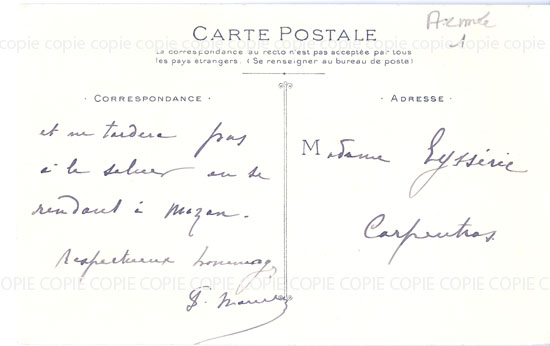 Armée
1
CARTE POSTALE
La correspondance au recto n'est pas acceptée par tous
les pays étrangers. (Se renseigner au bureau de poste)
CORRESPONDANCE
ADRESSE
et ne tardera pas
à le saluer en se
rendant à Mazan.
Respectueux hommage
Madame Eyssérie
Carpentras
copie copie copie copie copie copie copie copie copie copie
COPIE COPIE COPIE COPIE COPIE COPIE COPIE COPIE